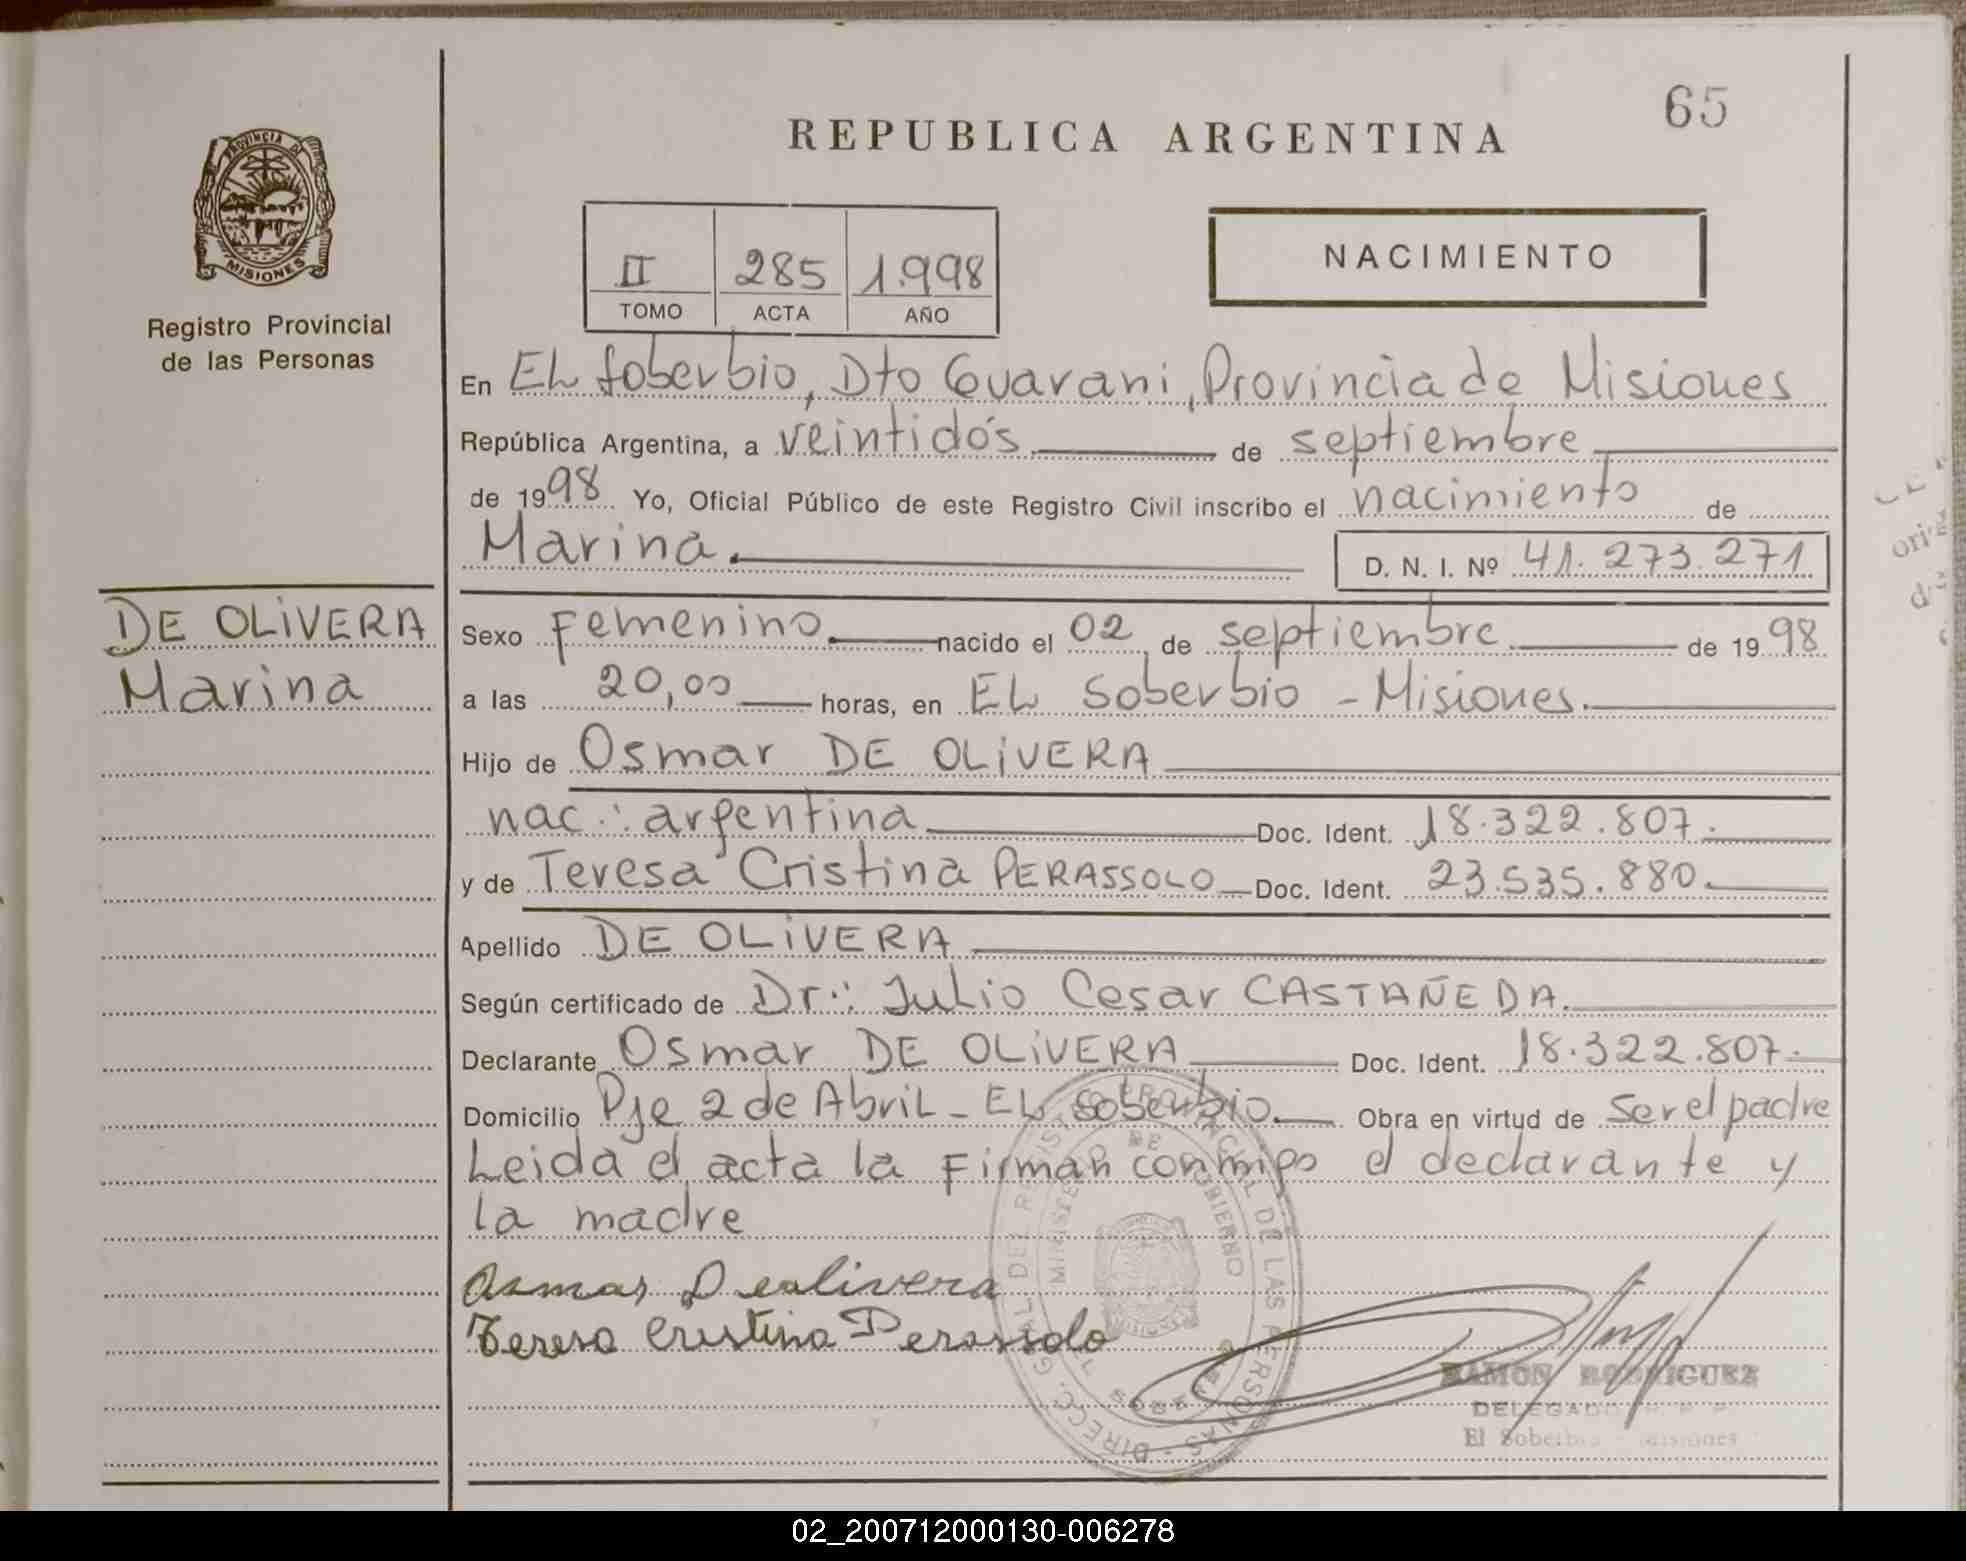 65
REPUBLICA ARGENTINA
PROVINCIA DE
MISIONES
Registro Provincial
de las Personas
II 285 1.998
TOMO ACTA AÑO
NACIMIENTO
En EL Soberbio, Dto Guarani, Provincia de Misiones
República Argentina, a veintidós de septiembre
de 1998 Yo, Oficial Público de este Registro Civil inscribo el nacimiento de
Marina.
D. N. I. Nº 41.273.271
DE OLIVERA
Marina
Sexo Femenino. nacido el 02 de septiembre. de 1998
a las 20,00 horas, en EL Soberbio - Misiones.
Hijo de Osmar DE OLIVERA
nac.: argentina Doc. Ident. 18.322.807.
y de Teresa Cristina PERASSOLO Doc. Ident. 23.535.880.
Apellido DE OLIVERA
Según certificado de Dr.: Julio Cesar CASTAÑEDA.
Declarante Osmar DE OLIVERA Doc. Ident. 18.322.807.
Domicilio Pje 2 de Abril - EL Soberbio. Obra en virtud de ser el padre
Leida el acta la Firman conmigo el declarante y
la madre
Osmar Deolivera
Teresa Cristina Perassolo
DIRECC. GRAL DEL REGISTRO PROVINCIAL DE LAS PERSONAS -
MINISTERIO DE GOBIERNO
MISIONES
RAMON RODRIGUEZ
DELEGADO R. P. P.
El Soberbio - Misiones
02_200712000130-006278